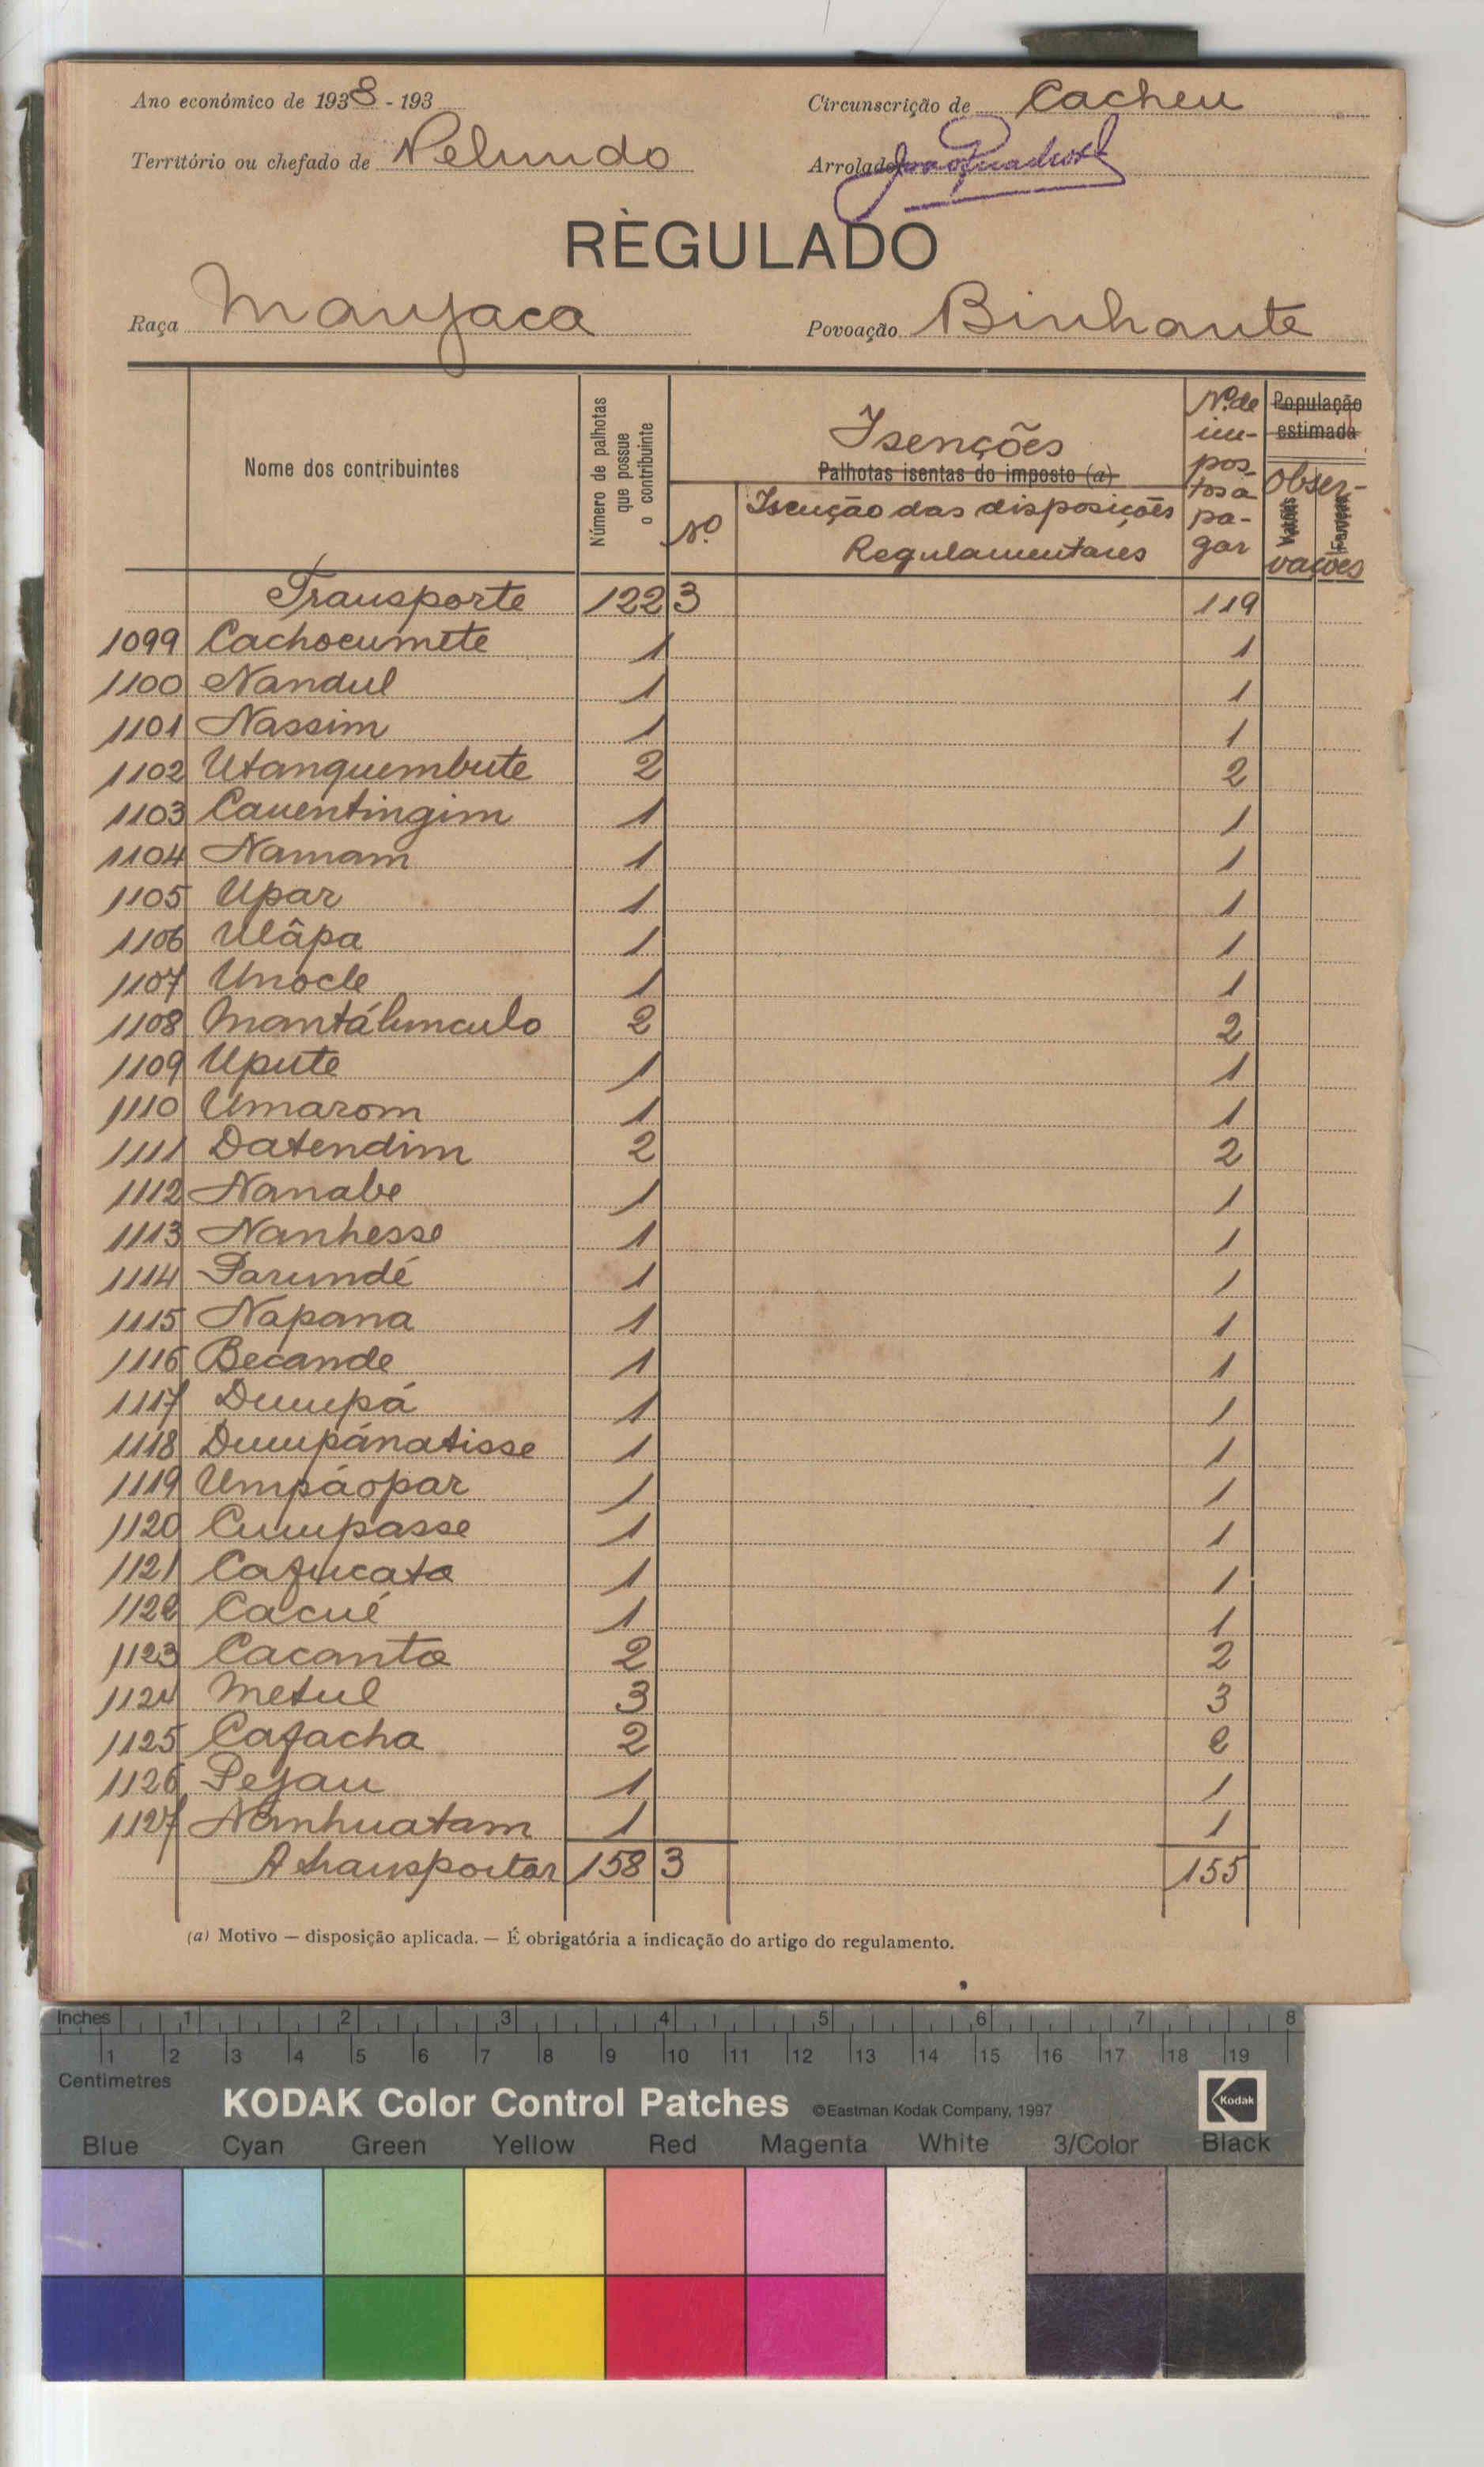 Ano económico de 1938 - 193
Circunscrição de Cacheu
Território ou chefado de Pelundo
Arrolador
RÈGULADO
Raça Manjaca
Povoação Binhante
Nome dos contribuintes
Número de palhotas que possue o contribuinte
Isenções
Palhotas isentas do imposto (a)
Nº
Isenção das disposições
Regulamentares
Nº de im-postos a pa-gar
População estimada
Obser-vações
Varões
Femeas
Transporte 122 3 119
1099 Cachocumete 1 1
1100 Nandul 1 1
1101 Nassim 1 1
1102 Utanquembute 2 2
1103 Cauentingim 1 1
1104 Namam 1 1
1105 Upar 1 1
1106 Ulâpa 1 1
1107 Unocle 1 1
1108 Mantálunculo 2 2
1109 Upute 1 1
1110 Umarom 1 1
1111 Datendim 2 2
1112 Nanabe 1 1
1113 Nanhesse 1 1
1114 Parundé 1 1
1115 Napana 1 1
1116 Becande 1 1
1117 Dumpá 1 1
1118 Dumpánatisse 1 1
1119 Umpáopar 1 1
1120 Cumpasse 1 1
1121 Cafucata 1 1
1122 Cacué 1 1
1123 Cacanta 2 2
1124 Metul 3 3
1125 Cafacha 2 2
1126 Pejau 1 1
1127 Nanhuatam 1 1
A transportar 158 3 155
(a) Motivo — disposição aplicada. — É obrigatória a indicação do artigo do regulamento.
Inches 1 2 3 4 5 6 7 8
1 2 3 4 5 6 7 8 9 10 11 12 13 14 15 16 17 18 19
Centimetres
KODAK Color Control Patches ©Eastman Kodak Company, 1997 Kodak
Blue Cyan Green Yellow Red Magenta White 3/Color Black